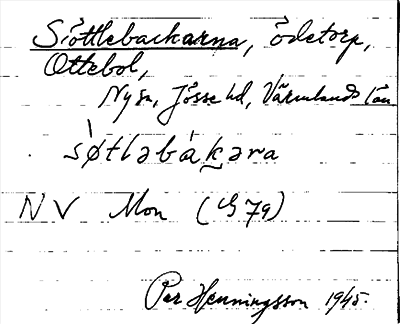 Siöttlebackarna, Ödetorp,
Ottebol,
Ny sn, Jösse hd, Värmlands län
sø̀tləbákəra
NV Mon (G 79)
Per Henningsson 1945.